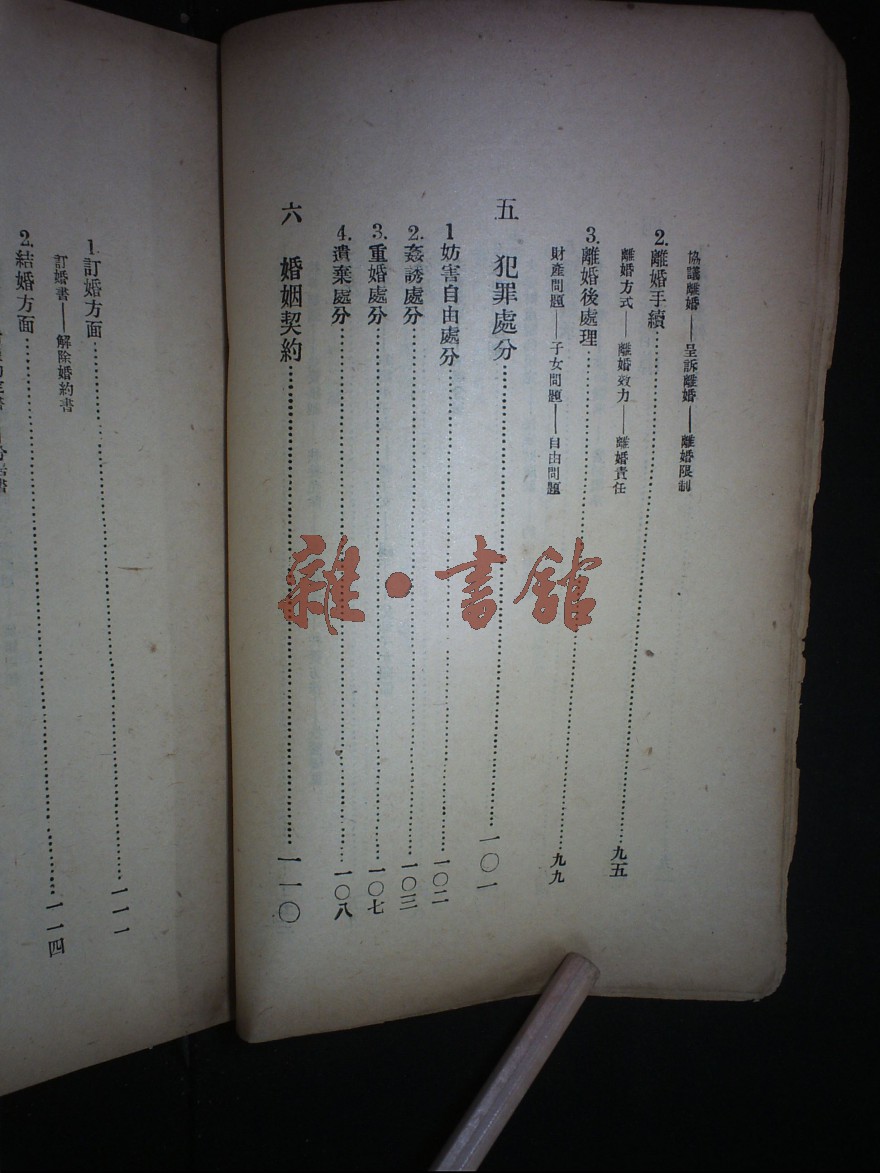 協議離婚——呈訴離婚——離婚限制
2.離婚手續……九五
離婚方式——離婚效力——離婚責任
3.離婚後處理……九九
財產問題——子女問題——自由問題
五 犯罪處分……一〇一
1妨害自由處分……一〇二
2.姦誘處分……一〇三
3.重婚處分……一〇七
4.遺棄處分……一〇八
六 婚姻契約……一一〇
1.訂婚方面……一一一
訂婚書——解除婚約書
2.結婚方面……一一四
雜·書館